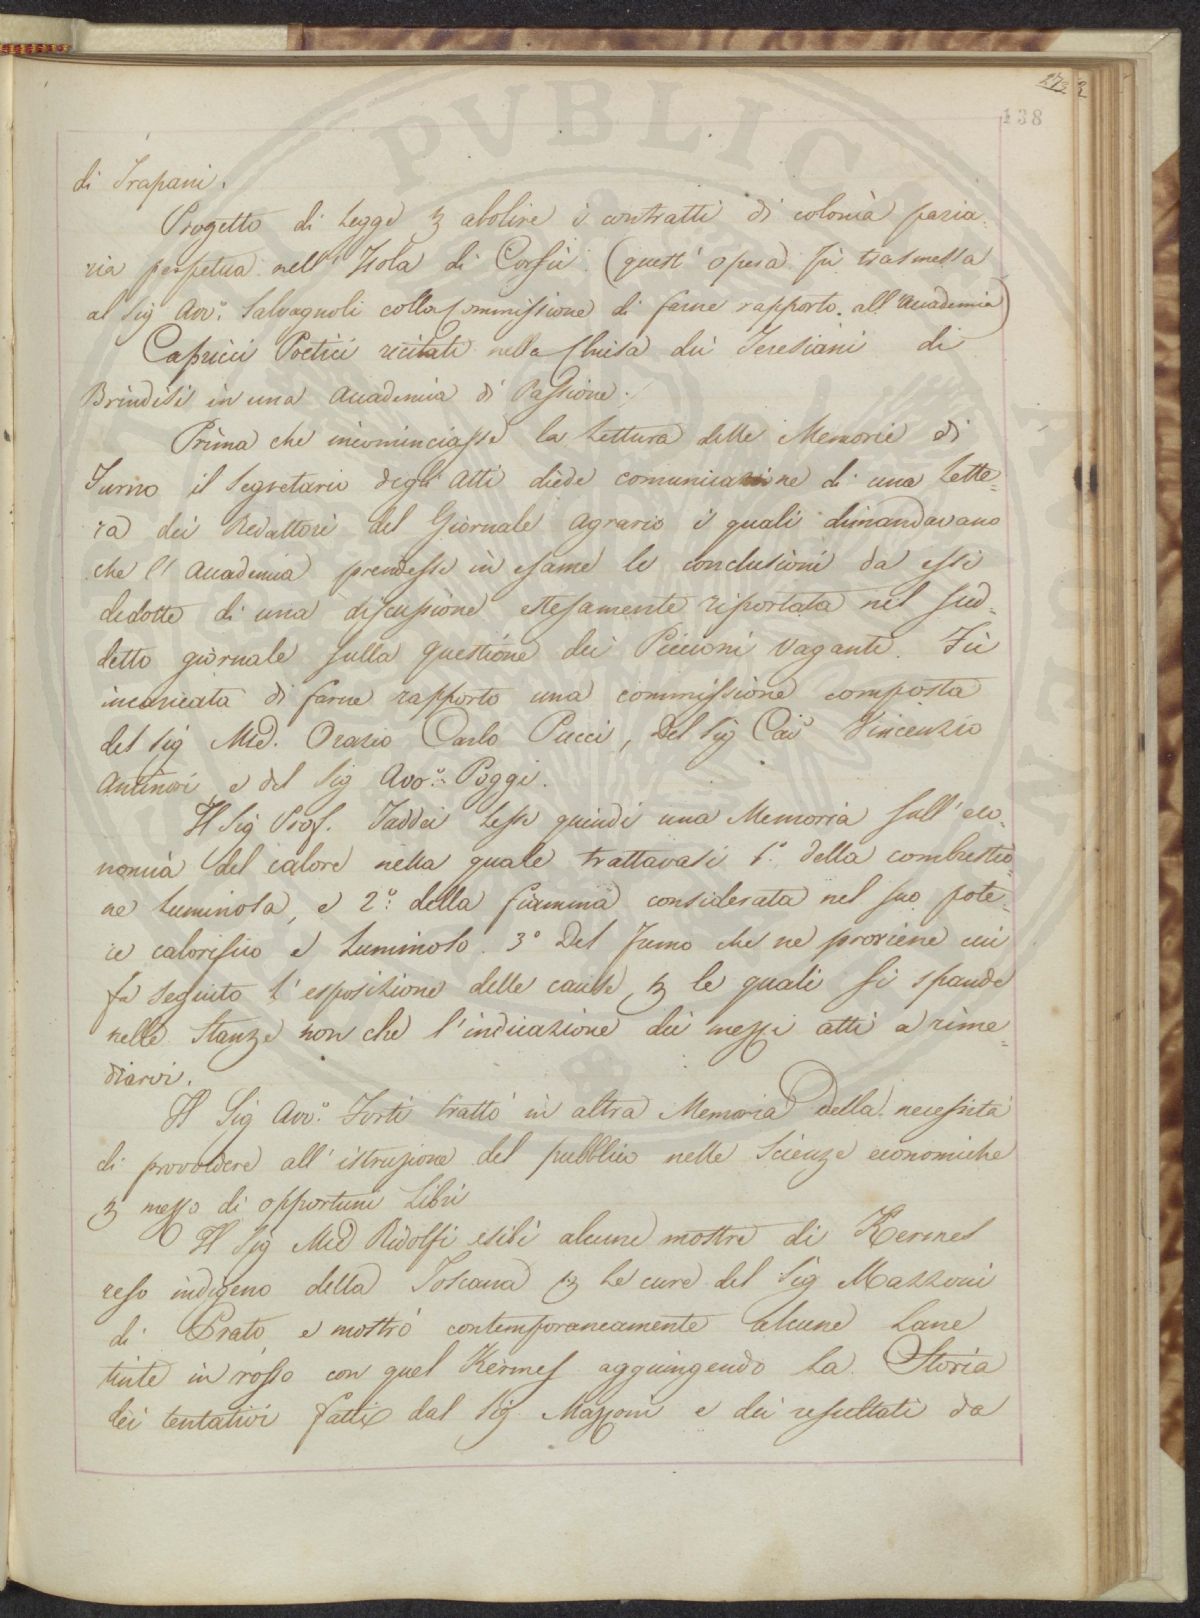 273
138
di Trapani.
Progetto di Legge p abolire i contratti di colonia pazia
ria perpetua nell' Isola di Corfù. (quest' opera fù trasmessa
al Sig Avv.° Salvagnoli colla Commissione di farne rapporto all' Accademia)
Capricci Poetici recitati nella Chiesa dei Teresiani di
Brindisi in una Accademia di Passione.
Prima che incominciasse la Lettura delle Memorie di
Turno il Segretario degli Atti diede comunicazione di una Lette=
ra dei Redattori del Giornale Agrario i quali dimandavano
che l' Accademia prendesse in esame le conclusioni da essi
dedotte di una discussione estesamente riportata nel sud=
detto giornale sulla questione dei Piccioni vaganti. Fù
incaricata di farne rapporto una commissione composta
del Sig Mse. Orazio Carlo Pucci, del Sig Cav Vincenzio
Antinori, e del Sig Avv.° Poggi.
Il Sig Prof. Taddei Lesse quindi una Memoria sull' eco=
nomia del calore nella quale trattavasi 1.° della combustio=
ne Luminosa, e 2.° della fiamma considerata nel suo pote=
re calorifico e Luminoso. 3° Del fumo che ne proviene cui
fa seguito l' esposizione delle cause p le quali si spande
nelle Stanze non che l' indicazione dei mezzi atti a rime=
diarvi.
Il Sig Avv.° Forti trattò in altra Memoria della necessità
di provvedere all' istruzione del pubblico nelle Scienze economiche
p mezzo di opportuni Libri
Il Sig Mse Ridolfi esibì alcune mostre di Kermes
reso indigeno della Toscana p Le cure del Sig Mazzoni
di Prato e mostrò contemporaneamente alcune Lane
tinte in rosso con quel Kermes aggiungendo La Storia
dei tentativi fatti dal Sig. Mazzoni e dei resultati da